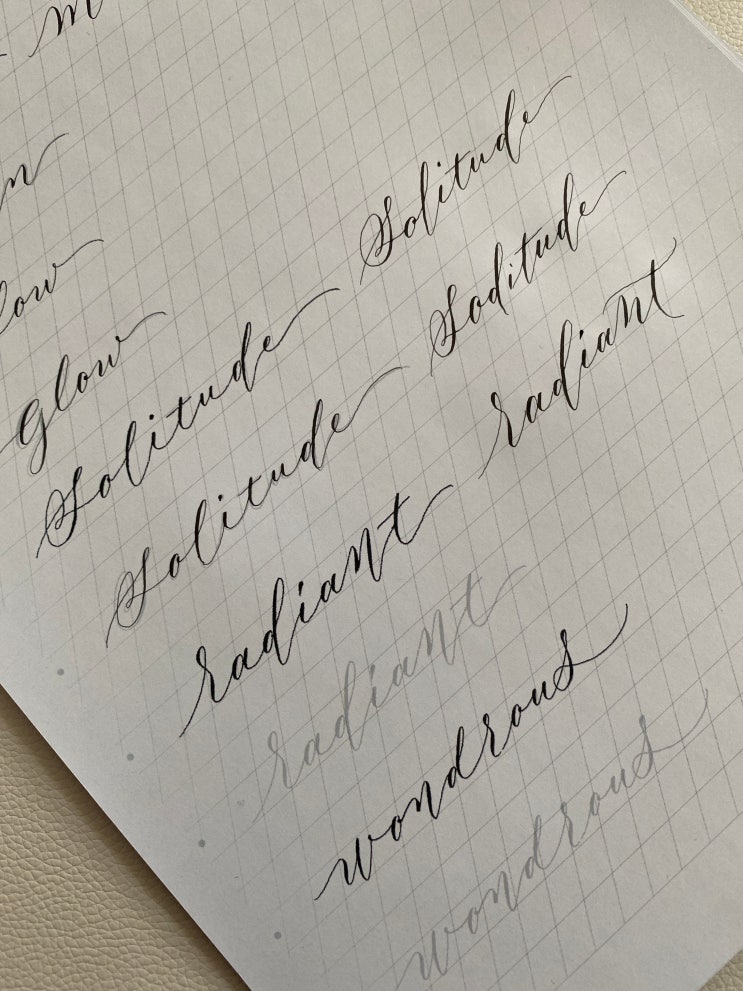 low
Glow
Solitude Solitude
Solitude Soditude
radiant radiant
radiant
wondrous
wondrous